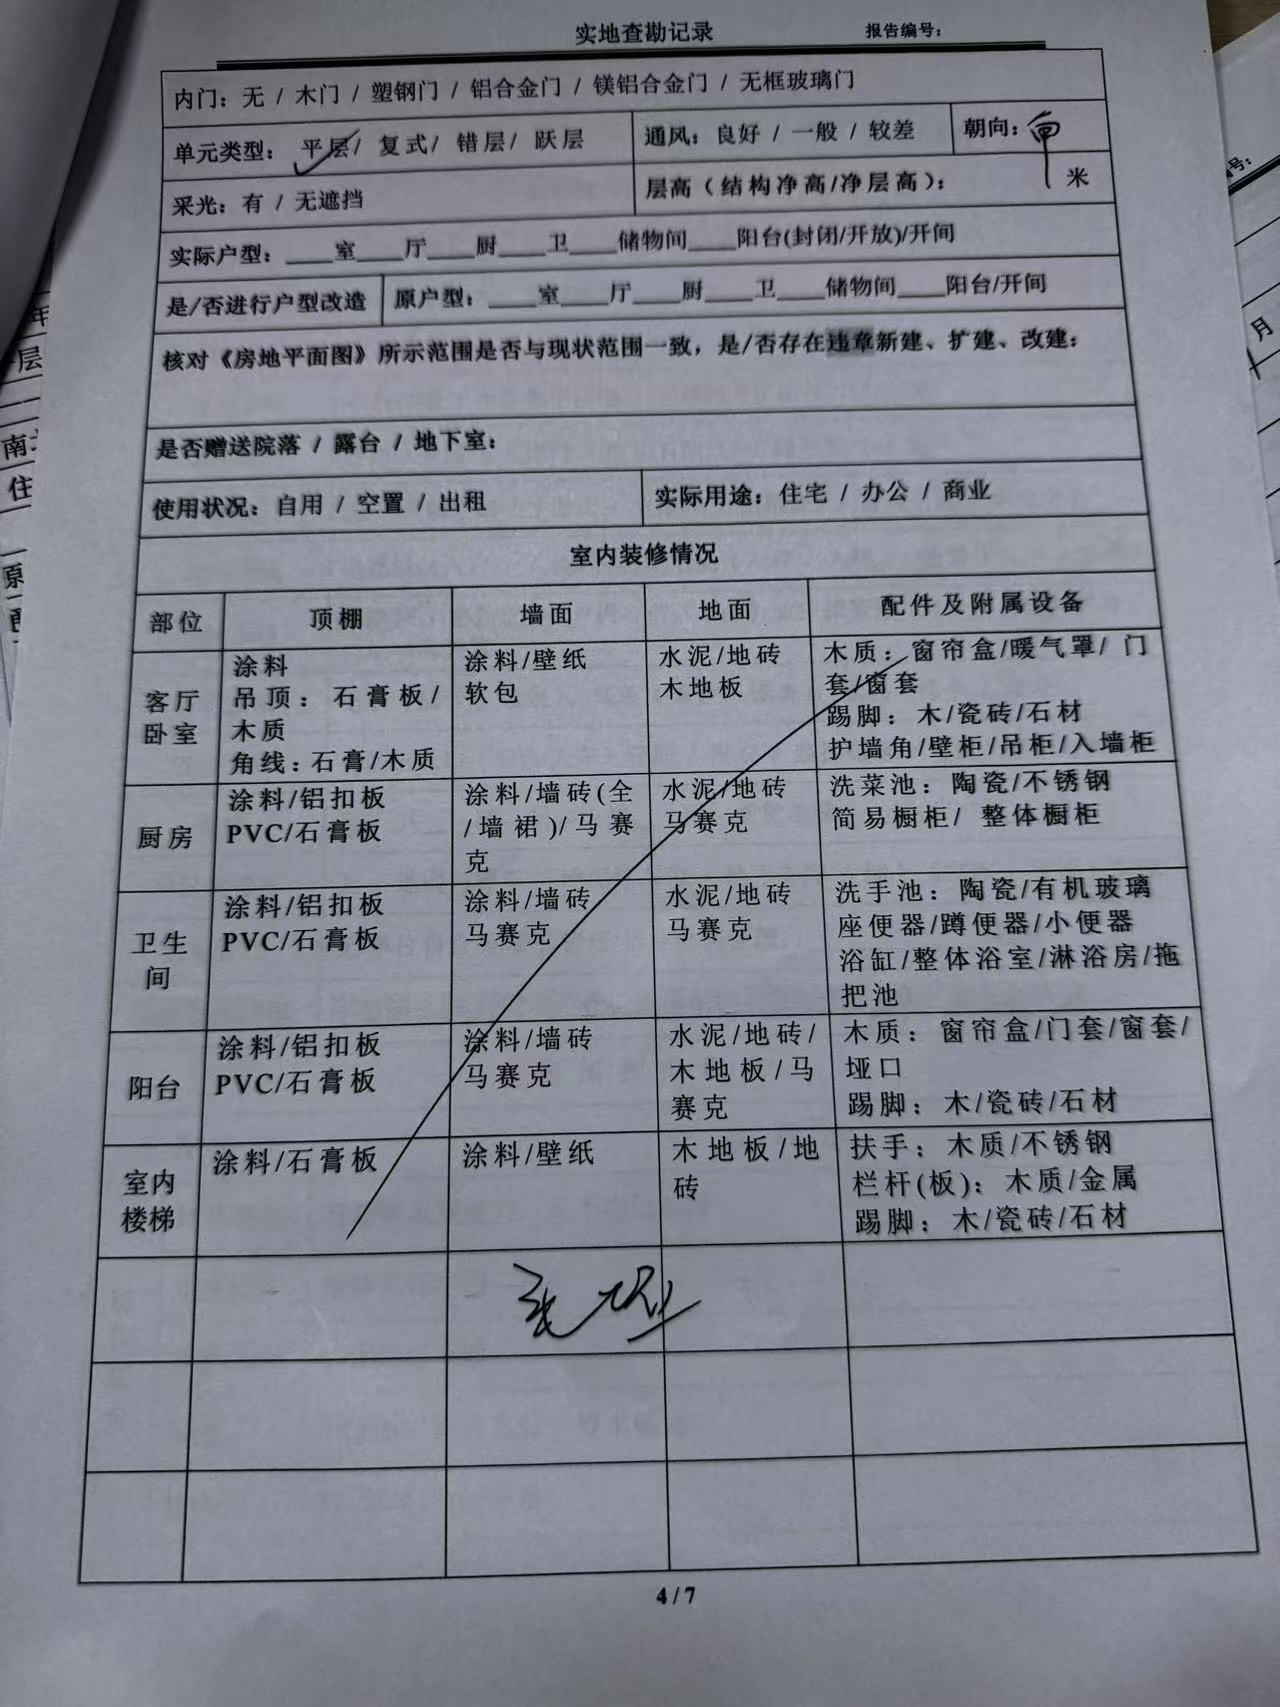 实地查勘记录 报告编号:
内门: 无 / 木门 / 塑钢门 / 铝合金门 / 镁铝合金门 / 无框玻璃门
单元类型: 平层/ 复式/ 错层/ 跃层 通风: 良好 / 一般 / 较差 朝向:
采光: 有 / 无遮挡 层高 (结构净高/净层高): 米
实际户型: ____室____厅____厨____卫____储物间____阳台(封闭/开放)/开间
是/否进行户型改造 原户型: ____室____厅____厨____卫____储物间____阳台/开间
核对《房地平面图》所示范围是否与现状范围一致, 是/否存在违章新建、扩建、改建:
是否赠送院落 / 露台 / 地下室:
使用状况: 自用 / 空置 / 出租 实际用途: 住宅 / 办公 / 商业
室内装修情况
部位 顶棚 墙面 地面 配件及附属设备
客厅
卧室
涂料
吊顶: 石膏板/
木质
角线: 石膏/木质
涂料/壁纸
软包
水泥/地砖
木地板
木质: 窗帘盒/暖气罩/ 门
套/窗套
踢脚: 木/瓷砖/石材
护墙角/壁柜/吊柜/入墙柜
厨房
涂料/铝扣板
PVC/石膏板
涂料/墙砖(全
/墙裙)/马赛
克
水泥/地砖
马赛克
洗菜池: 陶瓷/不锈钢
简易橱柜/ 整体橱柜
卫生
间
涂料/铝扣板
PVC/石膏板
涂料/墙砖
马赛克
水泥/地砖
马赛克
洗手池: 陶瓷/有机玻璃
座便器/蹲便器/小便器
浴缸/整体浴室/淋浴房/拖
把池
阳台
涂料/铝扣板
PVC/石膏板
涂料/墙砖
马赛克
水泥/地砖/
木地板/马
赛克
木质: 窗帘盒/门套/窗套/
垭口
踢脚: 木/瓷砖/石材
室内
楼梯
涂料/石膏板
涂料/壁纸
木地板/地
砖
扶手: 木质/不锈钢
栏杆(板): 木质/金属
踢脚: 木/瓷砖/石材
4 / 7
年
层
南
住
原
号:
月